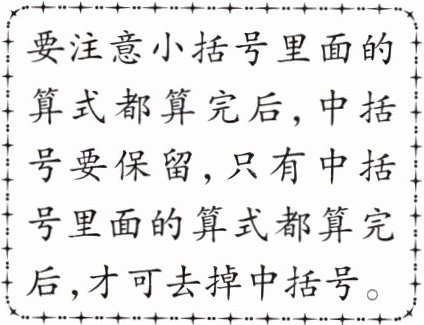 要注意小括号里面的
算式都算完后,中括
号要保留,只有中括
号里面的算式都算完
后,才可去掉中括号。